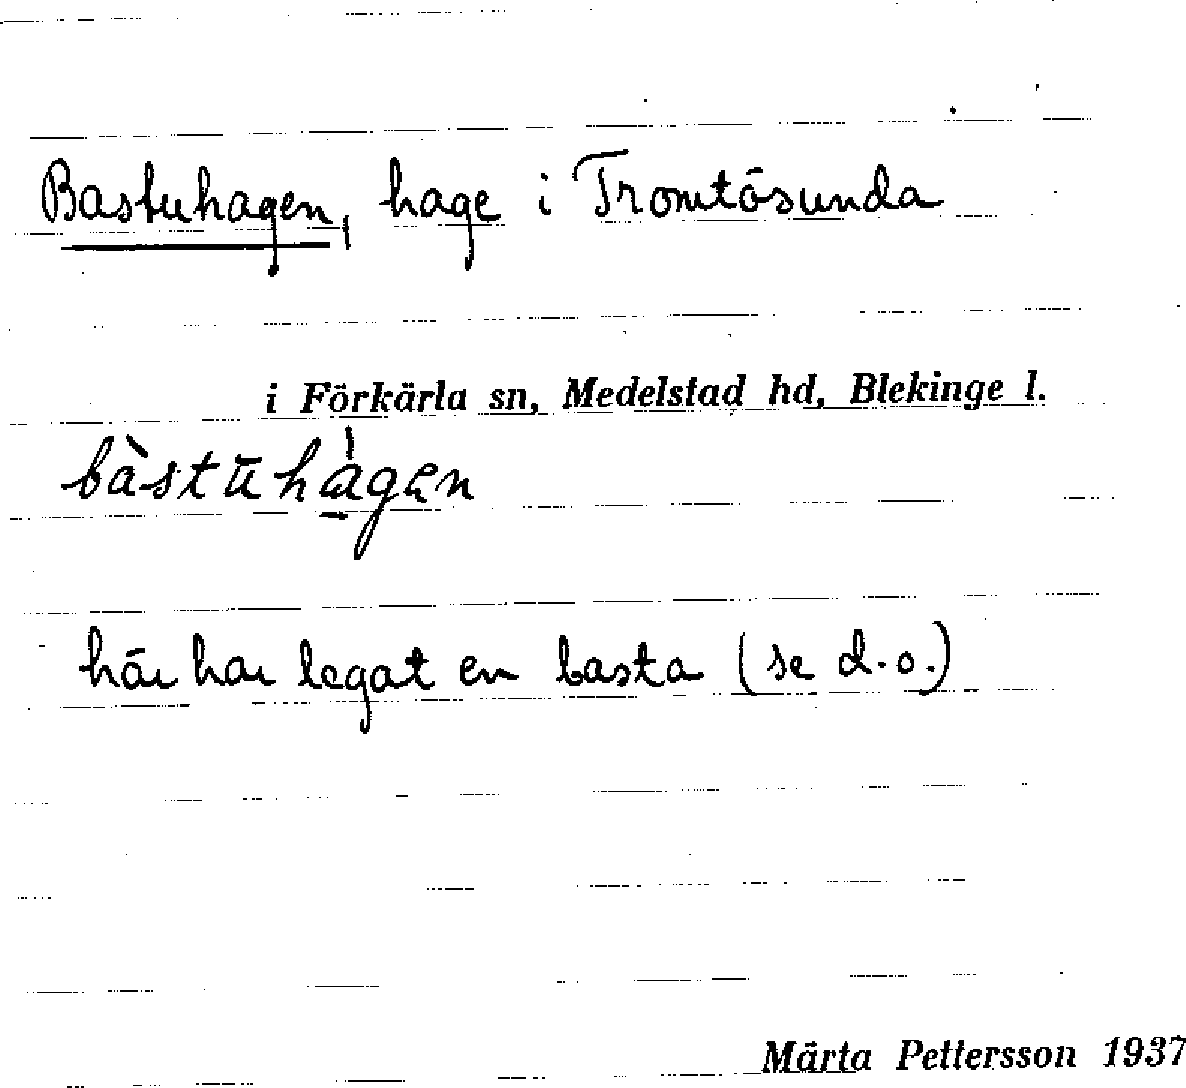 Bastuhagen, hage i Tromtösunda
i Förkärla sn, Medelstad hd, Blekinge l.
bàstūhágen
här har legat en basta (se d.o.)
Märta Pettersson 1937